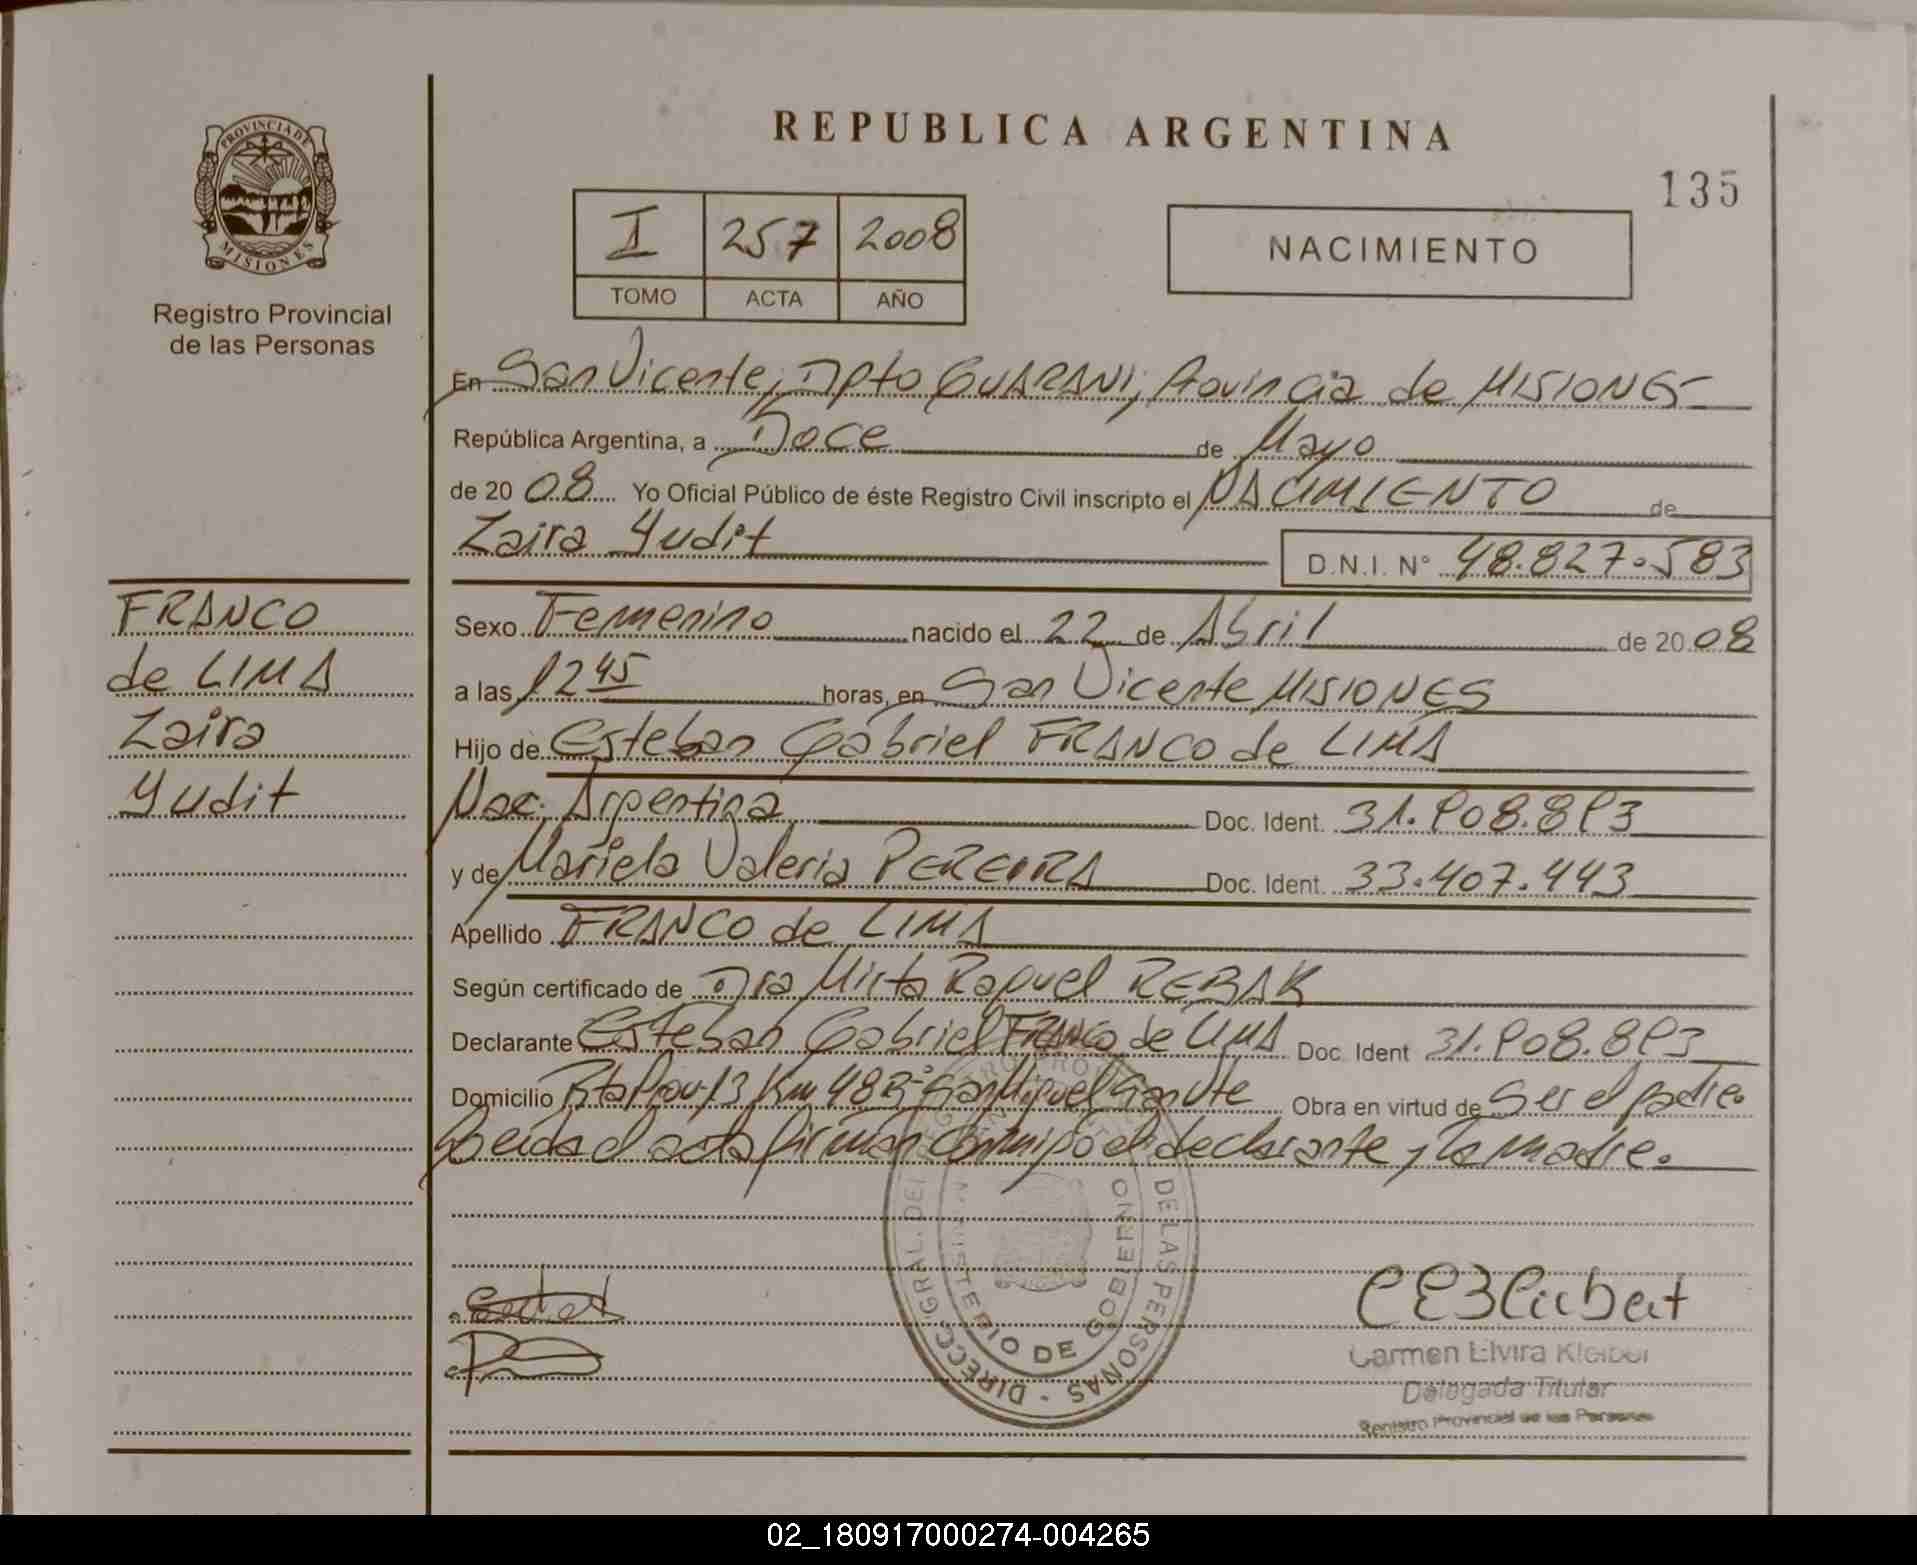 PROVINCIA DE
MISIONES
Registro Provincial
de las Personas
FRANCO
de LIMA
Zaira
Yudit
REPUBLICA ARGENTINA
135
I 257 2008
TOMO ACTA AÑO
NACIMIENTO
En San Vicente, Dpto GUARANI, Provincia de MISIONES
República Argentina, a Doce de Mayo
de 2008 Yo Oficial Público de éste Registro Civil inscripto el NACIMIENTO de
Zaira Yudit D.N.I. Nº 48.827.583
Sexo Femenino nacido el 22 de Abril de 2008
a las 12 45 horas, en San Vicente MISIONES
Hijo de Esteban Gabriel FRANCO de LIMA
Nac. Argentina Doc. Ident. 31.908.893
y de Mariela Valeria PEREIRA Doc. Ident. 33.407.443
Apellido FRANCO de LIMA
Según certificado de Dra Mirta Raquel REBAK
Declarante Esteban Gabriel FRANCO de LIMA Doc. Ident 31.908.893
Domicilio Rta Prov. 13 Km 48 Bº San Miguel San Vte Obra en virtud de Ser el padre.
Leida el acta firman conmigo el declarante y la madre.
DIRECC. GRAL. DEL DE LAS PERSONAS
MINISTERIO DE GOBIERNO
Carmen Elvira Kleiber
Delegada Titular
Registro Provincial de las Personas
02_180917000274-004265